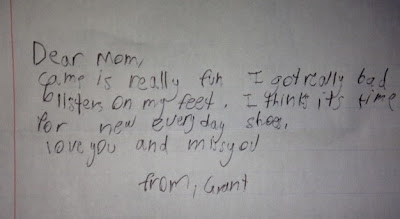 Dear Mom,
came is really fun I got really bad
blisters on my feet. I thinks it's time
for new everyday shoes,
love you and miss you
from, Grant